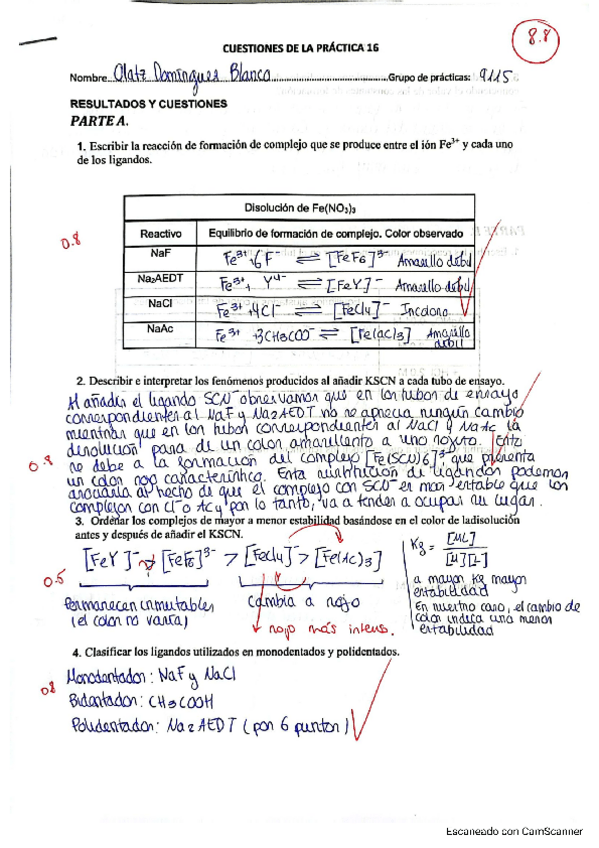 8.8
CUESTIONES DE LA PRÁCTICA 16
Nombre Olatz Domingues Blanco Grupo de prácticas: 9115
RESULTADOS Y CUESTIONES
PARTE A.
1. Escribir la reacción de formación de complejo que se produce entre el ión Fe³⁺ y cada uno
de los ligandos.
0.8
Disolución de Fe(NO₃)₃
Reactivo Equilibrio de formación de complejo. Color observado
NaF Fe³⁺+6F⁻ ⇌ [FeF6]³⁻ Amarillo débil
Na₂AEDT Fe³⁺+ Y⁴⁻ ⇌ [FeY]⁻ Amarillo débil
NaCl Fe³⁺+4Cl⁻ ⇌ [FeCl4]⁻ Incoloro
NaAc Fe³⁺ +3CH3COO⁻ ⇌ [Fe(ac)3] Amarillo débil
2. Describir e interpretar los fenómenos producidos al añadir KSCN a cada tubo de ensayo.
Al añadir el ligando SCN⁻ observamos que en los tubos de ensayo
correspondientes al NaF y Na2AEDT no se aprecia ningún cambio
mientras que en los tubos correspondientes al NaCl y NaAc la
disolución pasa de un color amarillento a uno rojizo. Esto
0.8
se debe a la formación del complejo [Fe(SCN)6]³⁻, que presenta
un color rojo característico. Esta sustitución de ligandos podemos
asociarla al hecho de que el complejo con SCN⁻ es más estable que los
complejos con Cl⁻ o Ac y por lo tanto, va a tender a ocupar su lugar.
3. Ordenar los complejos de mayor a menor estabilidad basándose en el color de ladisolución
antes y después de añadir el KSCN.
[FeY]⁻ > [FeF6]³⁻ > [FeCl4]⁻ > [Fe(Ac)3]
Kf = [ML] / [M][L]
0.5
a mayor Kf mayor
estabilidad
Permanecen inmutables
(el color no varía)
cambia a rojo
En nuestro caso, el cambio de
color indica una menor
estabilidad
rojo más intens.
4. Clasificar los ligandos utilizados en monodentados y polidentados.
0.8
Monodentados: NaF y NaCl
Bidentados: CH3COOH
Polidentados: Na2AEDT (por 6 puntos)
Escaneado con CamScanner